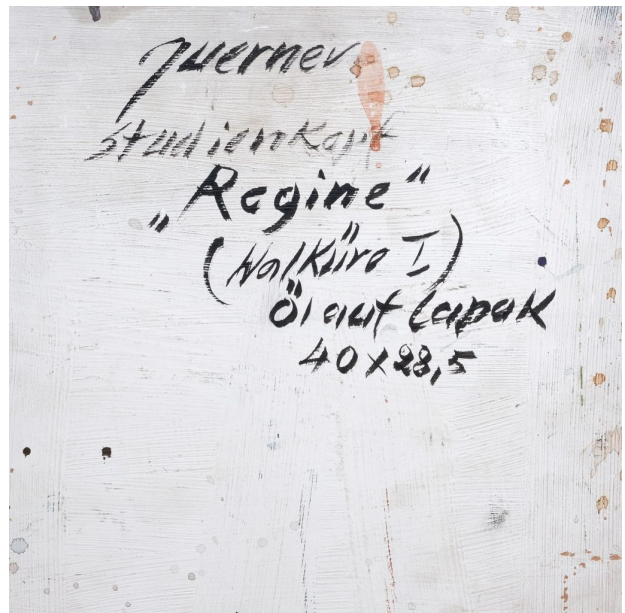 Juerner
Studienkopf
„Regine"
(Walküre I)
Öl auf Capak
40 x 28,5